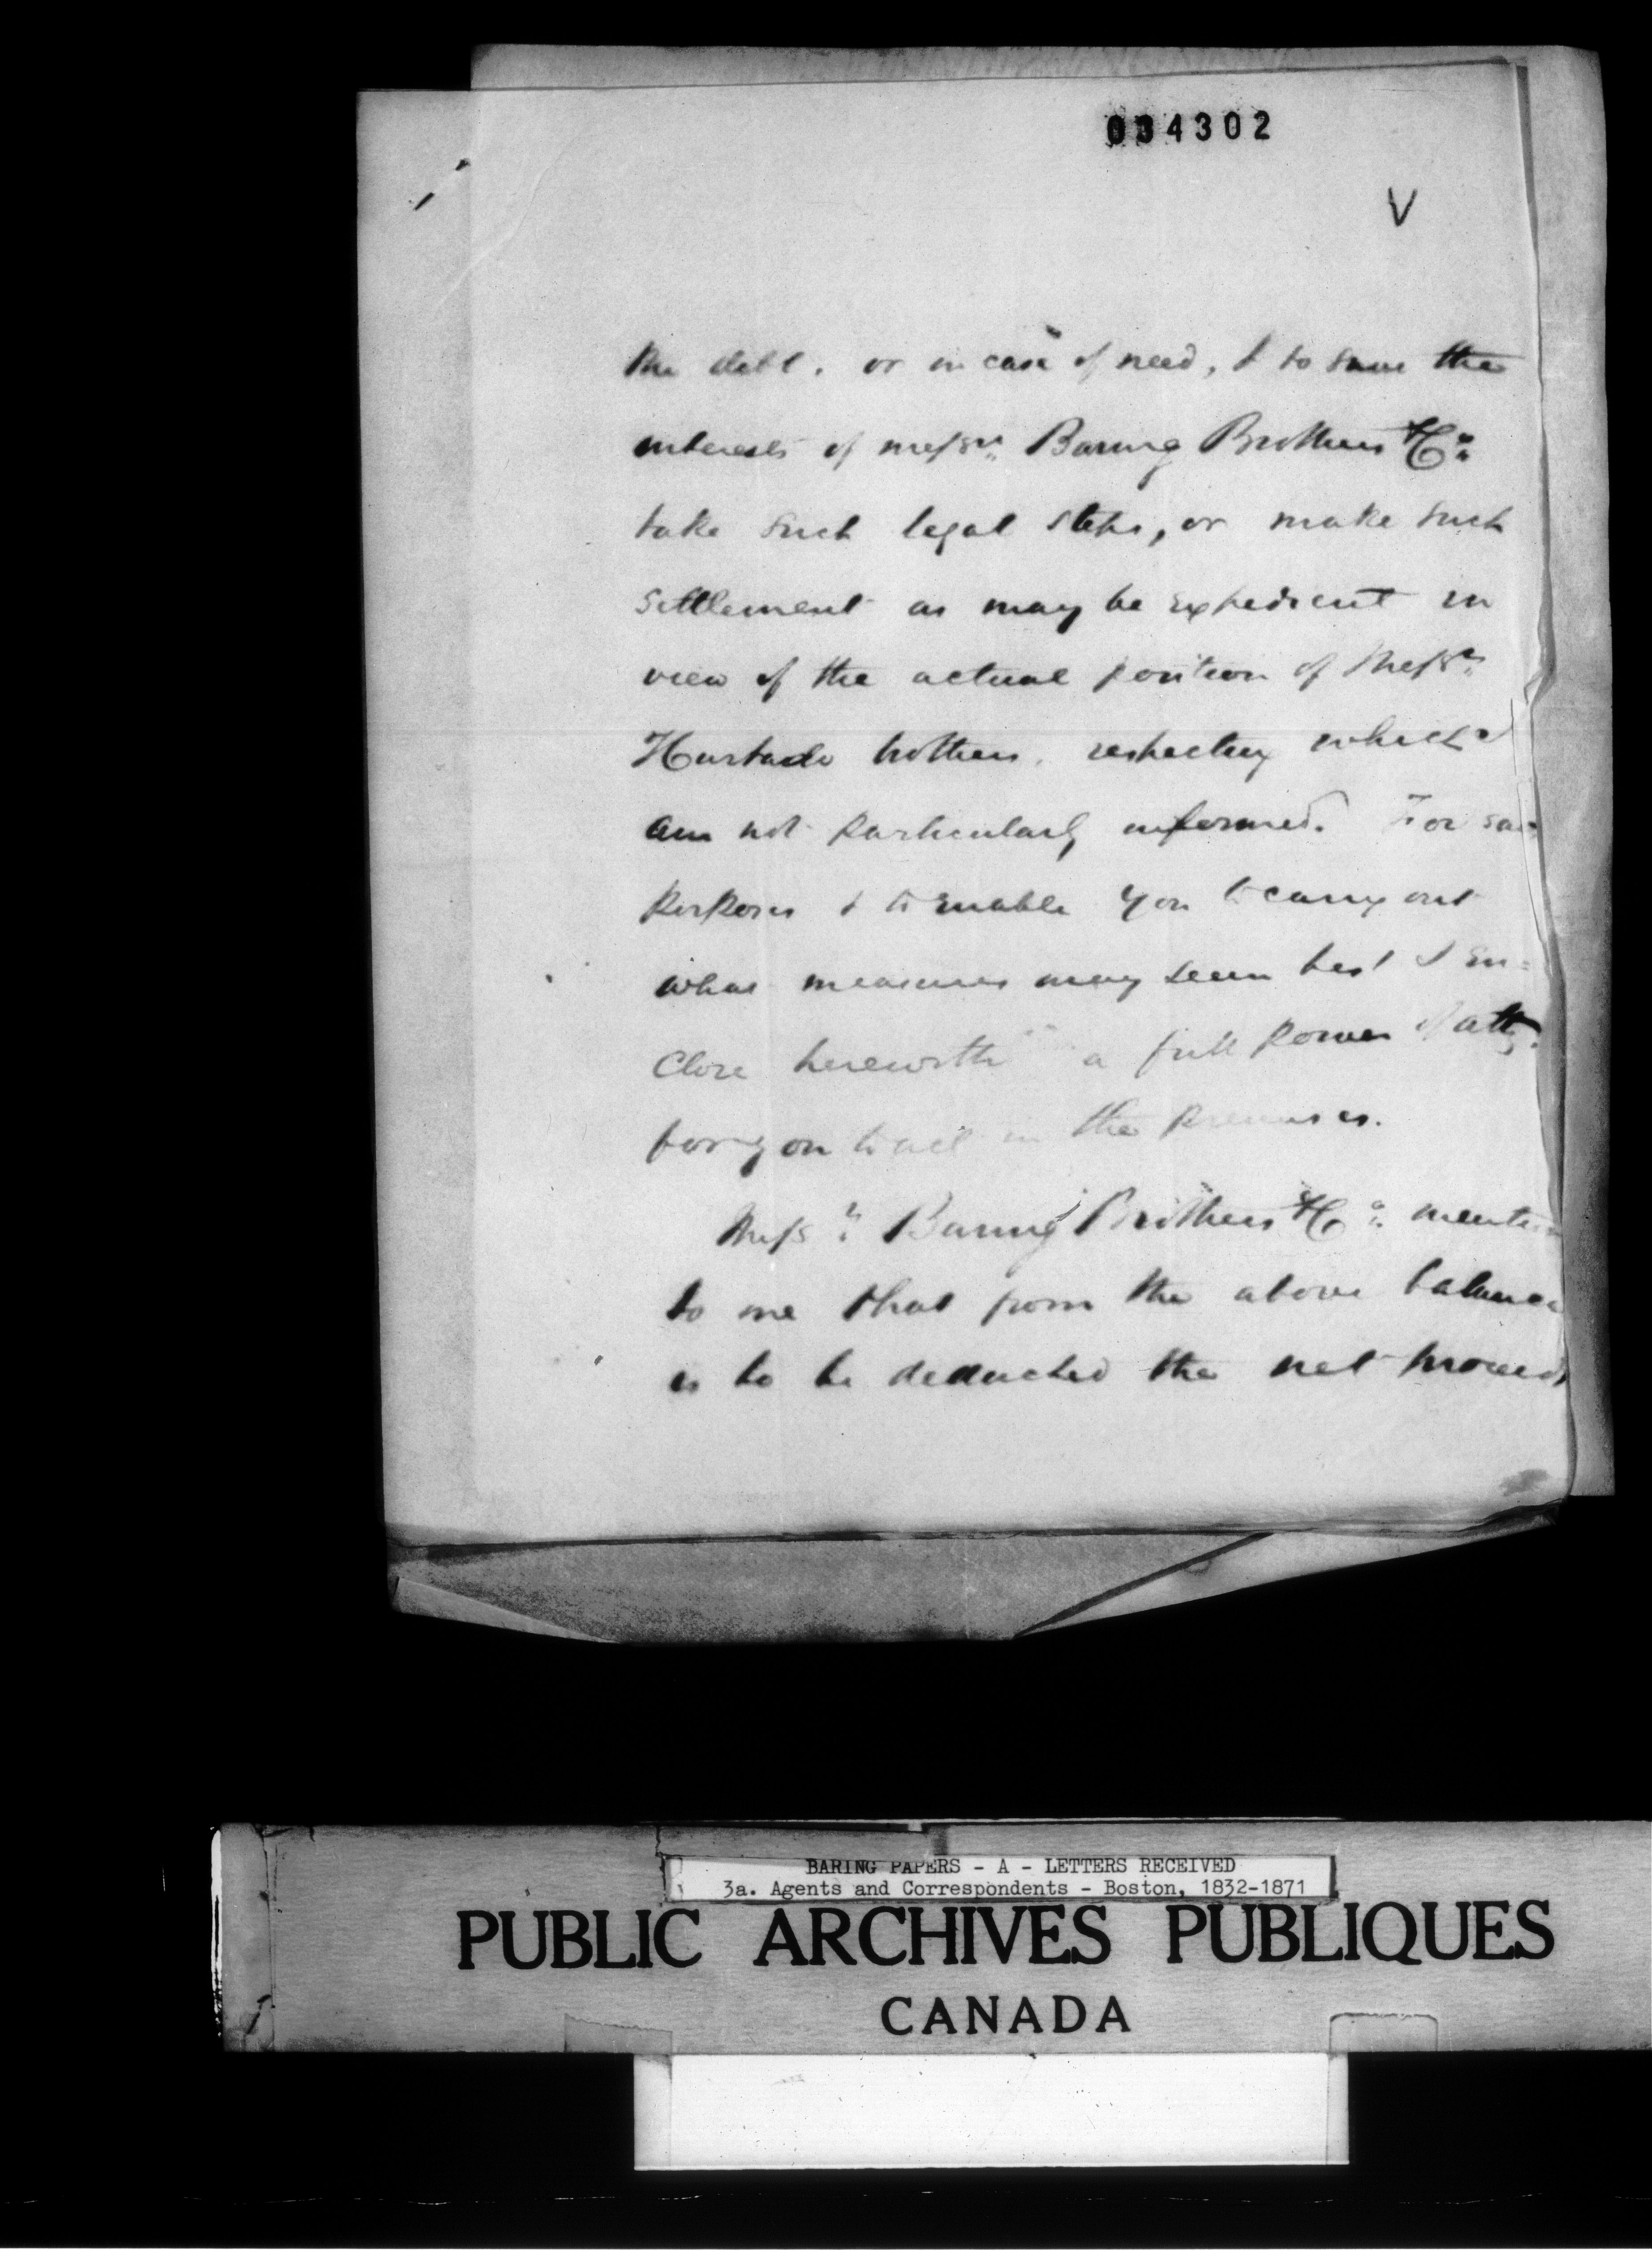 034302
V
the debt, or in case of need, & to save the
interests of Messrs. Baring Brothers & Co.
take such legal steps, or make such
settlement as may be expedient in
view of the actual position of Messrs.
Hurtado brothers, respecting which I
am not particularly informed. For
purposes & to enable you to carry out
what measures may seem best I en=
close herewith a full Power of atty.
for you to act in the premises.
Messrs. Baring Brothers & Co. mention
to me that from the above balance
is to be deducted the net proceeds
BARING PAPERS - A - LETTERS RECEIVED
3a. Agents and Correspondents - Boston, 1832-1871
PUBLIC ARCHIVES PUBLIQUES
CANADA